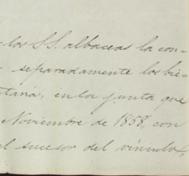 los S.S. albaceas la con-
separadamente los bie-
taria, en los junta que
Noviembre de 1858, con
al sucesor del vinculo,